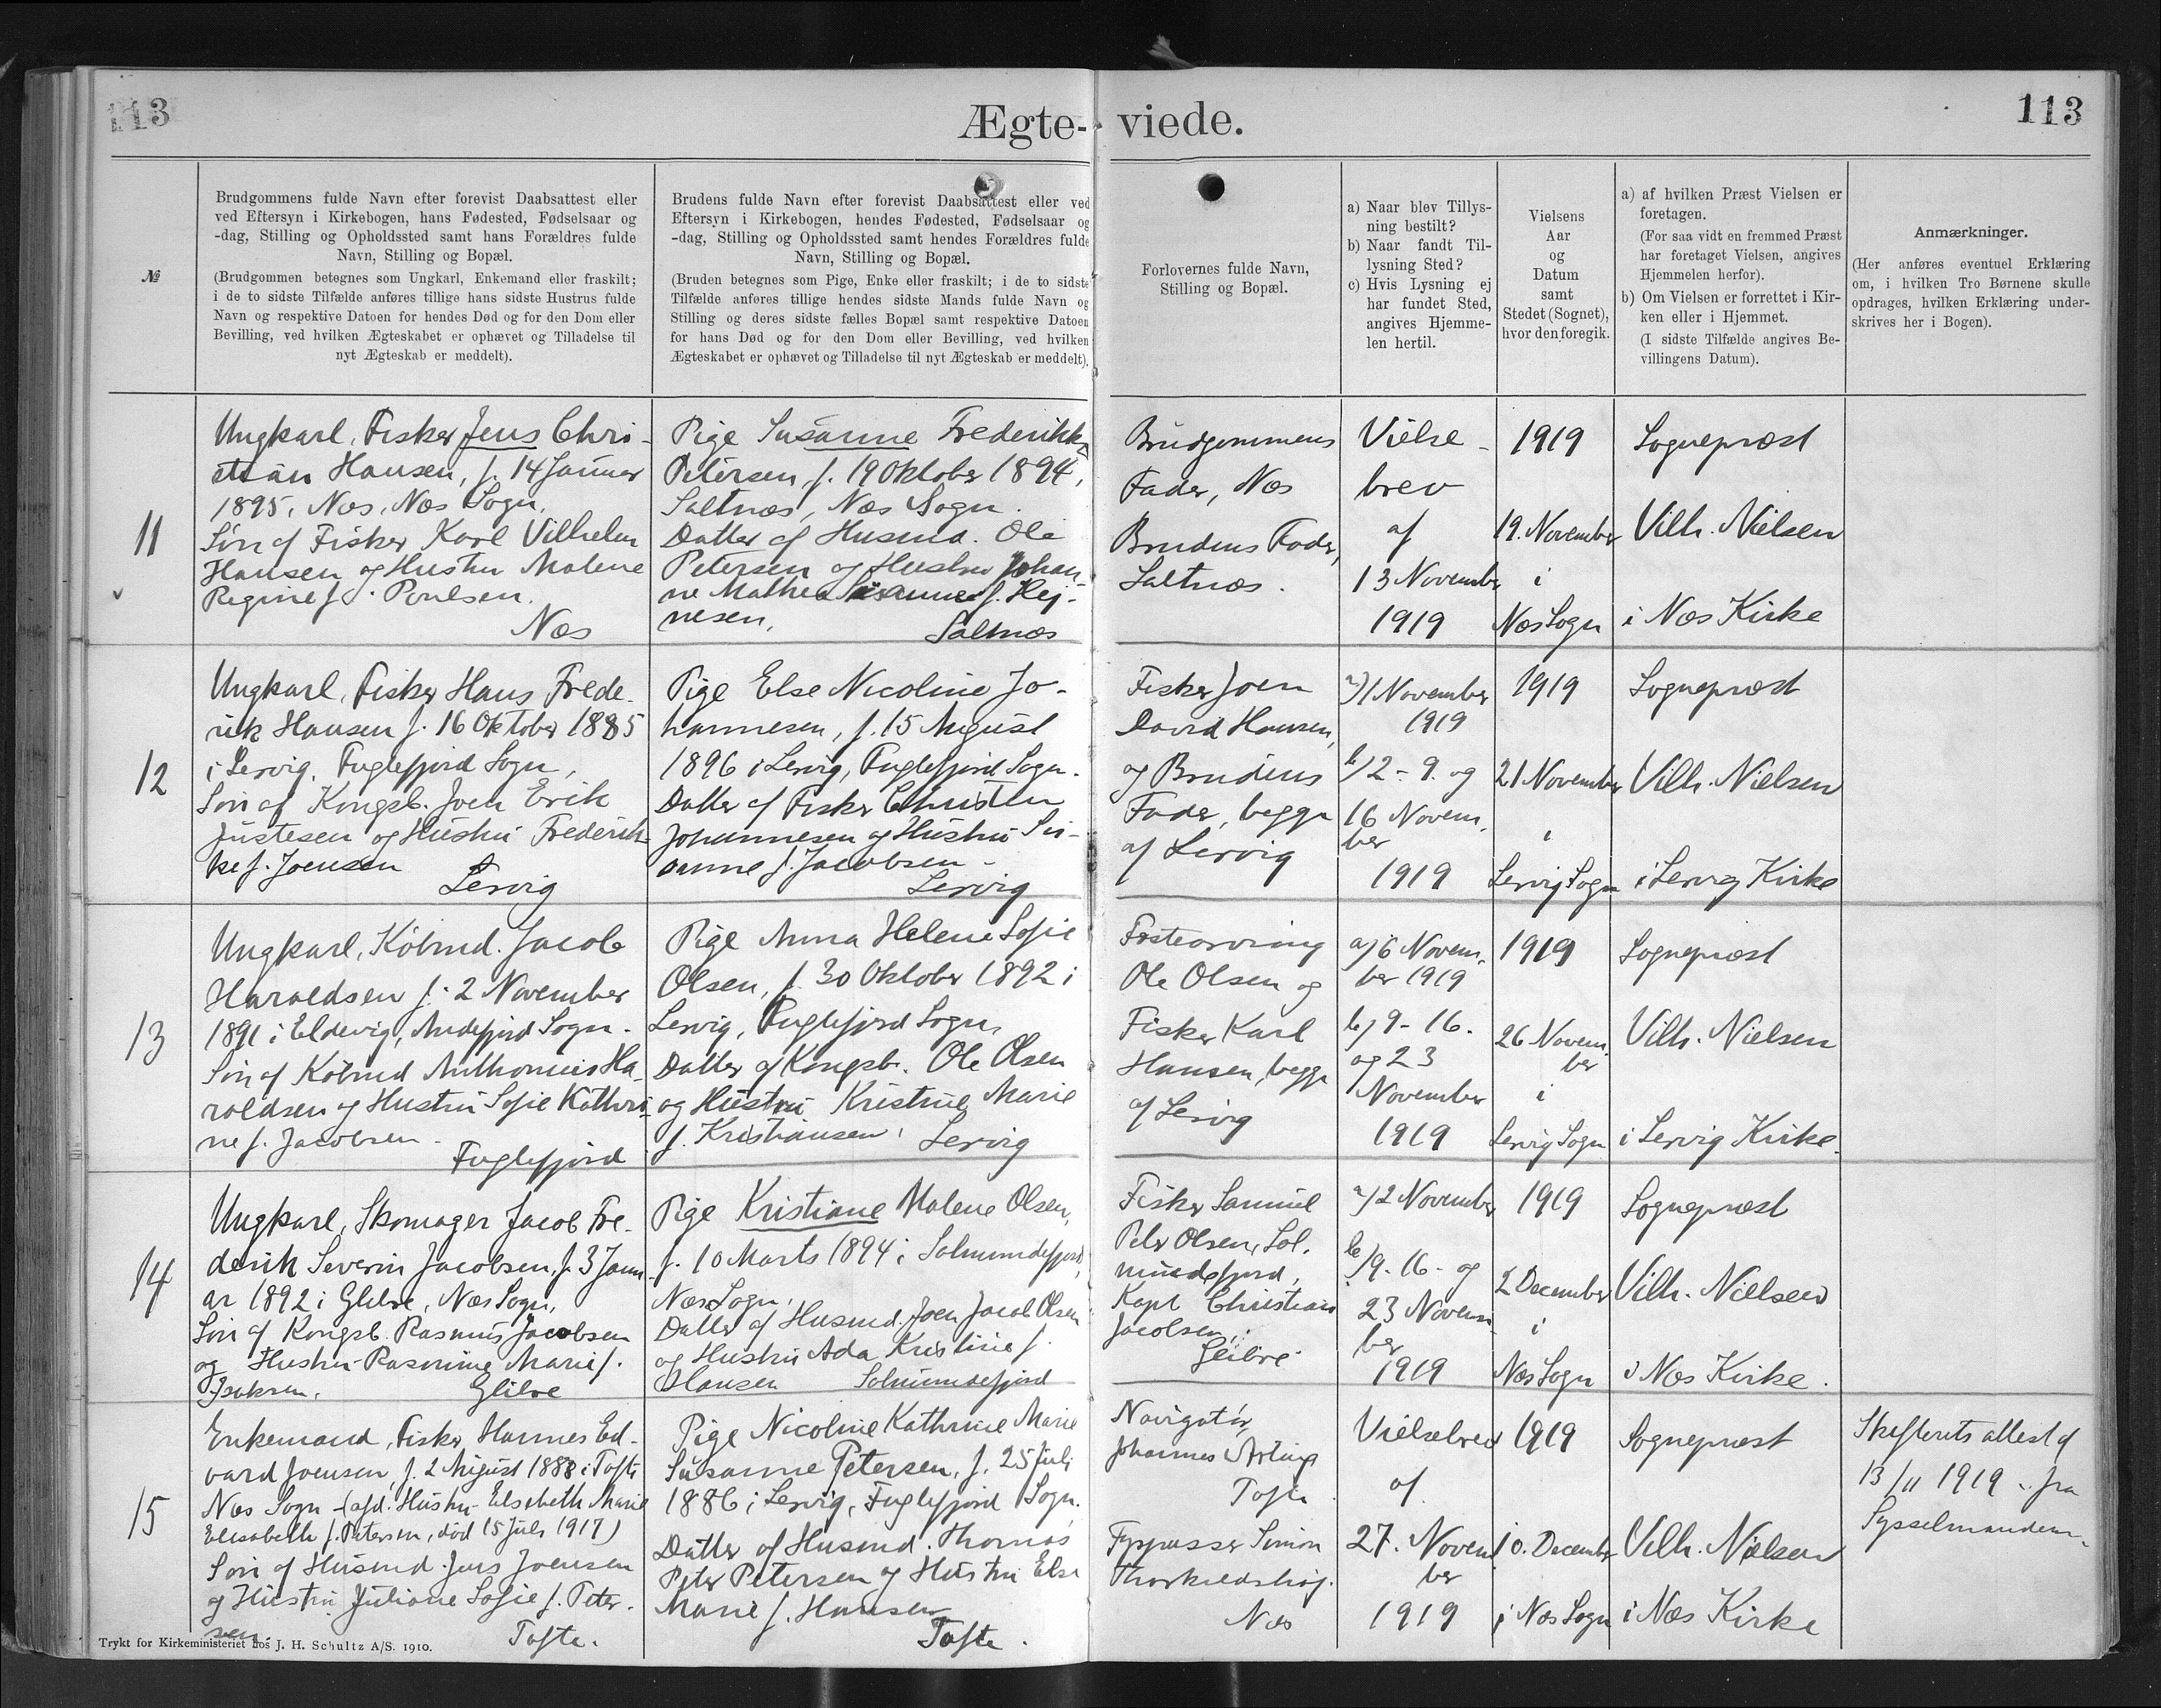 113
Ægte-
viede.
113
№
Brudgommens fulde Navn efter forevist Daabsattest eller
ved Eftersyn i Kirkebogen, hans Fødested, Fødselsaar og
-dag, Stilling og Opholdssted samt hans Forældres fulde
Navn, Stilling og Bopæl.
(Brudgommen betegnes som Ungkarl, Enkemand eller fraskilt;
i de to sidste Tilfælde anføres tillige hans sidste Hustrus fulde
Navn og respektive Datoen for hendes Død og for den Dom eller
Bevilling, ved hvilken Ægteskabet er ophævet og Tilladelse til
nyt Ægteskab er meddelt).
Brudens fulde Navn efter forevist Daabsattest eller ved
Eftersyn i Kirkebogen, hendes Fødested, Fødselsaar og
-dag, Stilling og Opholdssted samt hendes Forældres fulde
Navn, Stilling og Bopæl.
(Bruden betegnes som Pige, Enke eller fraskilt; i de to sidste
Tilfælde anføres tillige hendes sidste Mands fulde Navn og
Stilling og deres sidste fælles Bopæl samt respektive Datoen
for hans Død og for den Dom eller Bevilling, ved hvilken
Ægteskabet er ophævet og Tilladelse til nyt Ægteskab er meddelt).
Forlovernes fulde Navn,
Stilling og Bopæl.
a) Naar blev Tillys-
ning bestilt?
b) Naar fandt Til-
lysning Sted?
c) Hvis Lysning ej
har fundet Sted,
angives Hjemme-
len hertil.
Vielsens
Aar
og
Datum
samt
Stedet (Sognet),
hvor den foregik.
a) af hvilken Præst Vielsen er
foretagen.
(For saa vidt en fremmed Præst
har foretaget Vielsen, angives
Hjemmelen herfor).
b) Om Vielsen er forrettet i Kir-
ken eller i Hjemmet.
(I sidste Tilfælde angives Be-
villingens Datum).
Anmærkninger.
(Her anføres eventuel Erklæring
om, i hvilken Tro Børnene skulle
opdrages, hvilken Erklæring under-
skrives her i Bogen).
11
Ungkarl, Fisker Jens Chri-
stian Hansen, f. 14 Januar
1895, Næs, Næs Sogn,
Søn af Fisker Karl Vilhelm
Hansen og Hustru Malene
Regine f. Poulsen.
Næs
Pige Susanne Frederikke
Petersen, f. 19 Oktober 1894,
Saltnæs, Næs Sogn.
Datter af Husmd. Ole
Petersen og Hustru Johan-
ne Mathea Susanne f. Hej-
nesen,
Saltnæs
Brudgommens
Fader, Næs
Brudens Fader,
Saltnæs.
Vielse-
brev
af
13 November
1919
1919
19. November
i
Næs Sogn
Sognepræst
Vilh. Nielsen
i Næs Kirke
12
Ungkarl, Fisker Hans Frede-
rik Hansen f. 16 Oktober 1885
i Lervig, Fuglefjord Sogn,
Søn af Kongsb. Joen Erik
Justesen og Hustru Frederik-
ke f. Joensen
Lervig
Pige Else Nicoline Jo-
hannesen, f. 15 August
1896 i Lervig, Fuglefjord Sogn.
Datter af Fisker Christen
Johannesen og Hustru Su-
sanne f. Jacobsen -
Lervig
Fisker Joen
David Hansen,
og Brudens
Fader, begge
af Lervig
a) 1 November
1919
b) 2 - 9. og
16 Novem-
ber
1919
1919
21 November
i
Lervig Sogn
Sognepræst
Vilh. Nielsen
i Lervig Kirke
13
Ungkarl, Købmd. Jacob
Haraldsen f. 2 November
1891 i Eldevig, Andefjord Sogn.
Søn af Købmd Anthonius Ha-
raldsen og Hustru Sofie Kathri-
ne f. Jacobsen -
Fuglefjord
Pige Anna Helene Sofie
Olsen, f. 30 Oktober 1892 i
Lervig, Fuglefjord Sogn,
Datter af Kongsb. Ole Olsen
og Hustru Kristine Marie
f. Kristiansen,
Lervig
Ole Olsen og
Fisker Karl
Hansen, begge
af Lervig
a) 6 Novem-
ber 1919
b) 9 - 16.
og 23
November
1919
1919
26 Novem-
ber
i
Lervig Sogn
Sognepræst
Vilh. Nielsen
i Lervig Kirke.
14
Ungkarl, Skomager Jacob Fre-
derik Severin Jacobsen, f. 3 Janu-
ar 1892 i Glibre, Næs Sogn,
Søn af Kongsb. Rasmus Jacobsen
og Hustru Rasmine Marie f.
Isaksen.
Glibre
Pige Kristiane Malene Olsen,
f. 10 Marts 1894 i Solmundefjord,
Næs Sogn,
Datter af Husmd. Joen Jacob Olsen
og Hustru Ada Kristine f.
Hansen
Solmundefjord
Fisker Samuel
Peter Olsen, Sol-
mundefjord,
Kapt Christian
Jacobsen,
Glibre
a) 2 November
b) 9 - 16 - og
23 Novem-
ber
1919
1919
2 December
i
Næs Sogn
Sognepræst
Vilh. Nielsen
i Næs Kirke.
15
Enkemand, Fisker Hannes Ed-
vard Joensen, f. 2 August 1888 i Tofte
Næs Sogn - (afd. Hustru Elsebeth Marie
Elisabeth f. Petersen, død 15 Juli 1917)
Søn af Husmd Jens Joensen
og Hustru Juliane Sofie f. Peter-
sen.
Tofte.
Pige Nicoline Kathrine Marie
Susanne Petersen, f. 25 Juli
1886 i Lervig, Fuglefjord Sogn.
Datter af Husmd. Thomas
Peter Petersen og Hustru Else
Marie f. Hansen
Tofte.
Navigatør,
Johannes
Tofte
Fyrpasser Simon
Thorkildshøj.
Næs
Vielsebrev
af
27. Novem-
ber
1919
1919
10. December
i Næs Sogn
Sognepræst
Vilh. Nielsen
i Næs Kirke
Skifterets attest af
13/11 1919 fra
Sysselmanden
Trykt for Kirkeministeriet hos J. H. Schultz A/S. 1910.